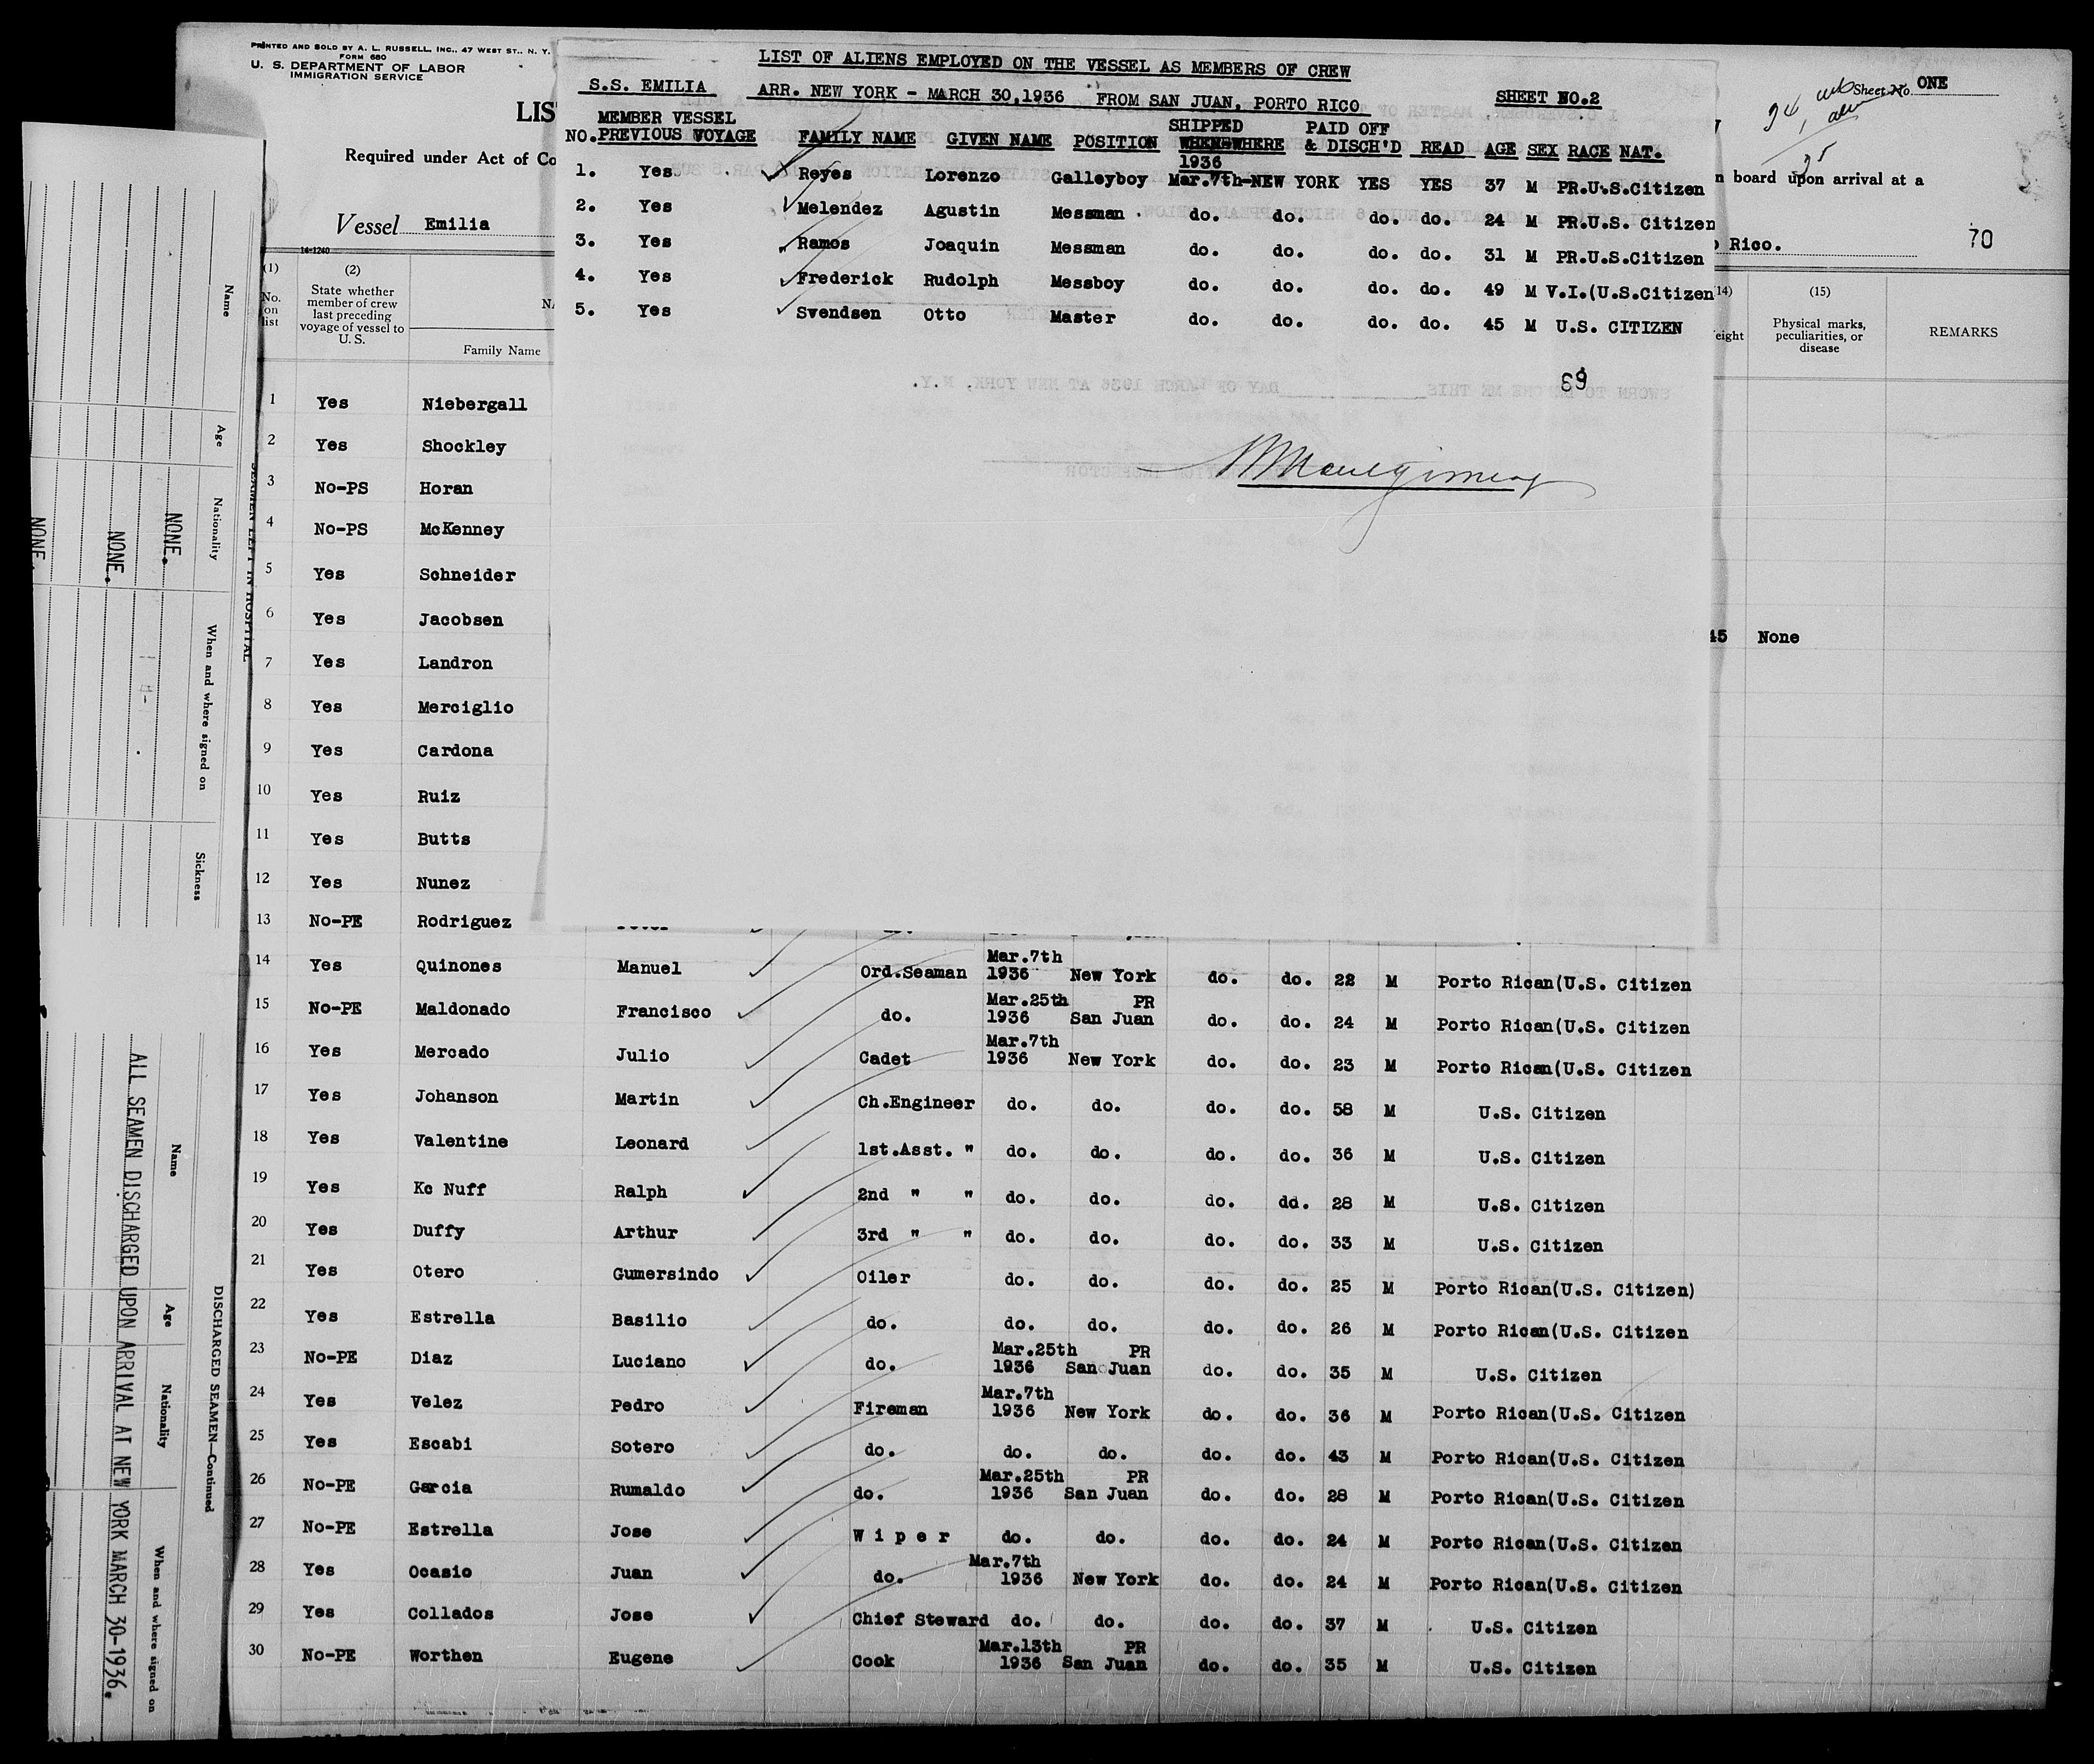 PRINTED AND SOLD BY A. L. RUSSELL, INC., 47 WEST ST., N. Y.
FORM 680
U. S. DEPARTMENT OF LABOR
IMMIGRATION SERVICE
LIS
Required under Act of Co
Vessel Emilia
14-1240
Sheet No. ONE
n board upon arrival at a
Rico.
70
LIST OF ALIENS EMPLOYED ON THE VESSEL AS MEMBERS OF CREW
S.S. EMILIA ARR. NEW YORK - MARCH 30,1936 FROM SAN JUAN, PORTO RICO SHEET NO.2
MEMBER VESSEL SHIPPED PAID OFF
NO. PREVIOUS VOYAGE FAMILY NAME GIVEN NAME POSITION WHEN-WHERE & DISCH'D READ AGE SEX RACE NAT.
1936
1. Yes Reyes Lorenzo Galleyboy Mar.7th-NEW YORK YES YES 37 M PR.U.S.Citizen
2. Yes Melendez Agustin Messman do. do. do. do. 24 M PR.U.S. Citizen
3. Yes Ramos Joaquin Messman do. do. do. do. 31 M PR.U.S.Citizen
4. Yes Frederick Rudolph Messboy do. do. do. do. 49 M V.I.(U.S.Citizen
5. Yes Svendsen Otto Master do. do. do. do. 45 M U.S. CITIZEN
69
(1) (2) (14) (15)
No. on list State whether member of crew last preceding voyage of vessel to U. S. Family Name eight Physical marks, peculiarities, or disease REMARKS
1 Yes Niebergall
2 Yes Shockley
3 No-PS Horan
4 No-PS McKenney
5 Yes Schneider
6 Yes Jacobsen 45 None
7 Yes Landron
8 Yes Merciglio
9 Yes Cardona
10 Yes Ruiz
11 Yes Butts
12 Yes Nunez
13 No-PE Rodriguez
Mar.7th
14 Yes Quinones Manuel Ord.Seaman 1936 New York do. do. 22 M Porto Rican(U.S. Citizen
Mar.25th PR
15 No-PE Maldonado Francisco do. 1936 San Juan do. do. 24 M Porto Rican(U.S. Citizen
Mar.7th
16 Yes Mercado Julio Cadet 1936 New York do. do. 23 M Porto Rican(U.S. Citizen
17 Yes Johanson Martin Ch.Engineer do. do. do. do. 58 M U.S. Citizen
18 Yes Valentine Leonard 1st.Asst. " do. do. do. do. 36 M U.S. Citizen
19 Yes Kc Nuff Ralph 2nd " " do. do. do. dd. 28 M U.S. Citizen
20 Yes Duffy Arthur 3rd " " do. do. do. do. 33 M U.S. Citizen
21 Yes Otero Gumersindo Oiler do. do. do. do. 25 M Porto Rican(U.S. Citizen)
22 Yes Estrella Basilio do. do. do. do. do. 26 M Porto Rican(U.S. Citizen
Mar.25th PR
23 No-PE Diaz Luciano do. 1936 San Juan do. do. 35 M U.S. Citizen
Mar.7th
24 Yes Velez Pedro Fireman 1936 New York do. do. 36 M Porto Rican(U.S. Citizen
25 Yes Escabi Sotero do. do. do. do. do. 43 M Porto Rican(U.S. Citizen
Mar.25th PR
26 No-PE Garcia Rumaldo do. 1936 San Juan do. do. 28 M Porto Rican(U.S. Citizen
27 No-PE Estrella Jose Wiper do. do. do. do. 24 M Porto Rican(U.S. Citizen
Mar.7th
28 Yes Ocasio Juan do. 1936 New York do. do. 24 M Porto Rican(U.S. Citizen
29 Yes Collados Jose Chief Steward do. do. do. do. 37 M U.S. Citizen
Mar.13th PR
30 No-PE Worthen Eugene Cook 1936 San Juan do. do. 35 M U.S. Citizen
SEAMEN LEFT IN HOSPITAL
Name Age Nationality When and where signed on Sickness
NONE.
NONE.
NONE.
DISCHARGED SEAMEN—Continued
Name Age Nationality When and where signed on
ALL SEAMEN DISCHARGED UPON ARRIVAL AT NEW YORK MARCH 30-1936.